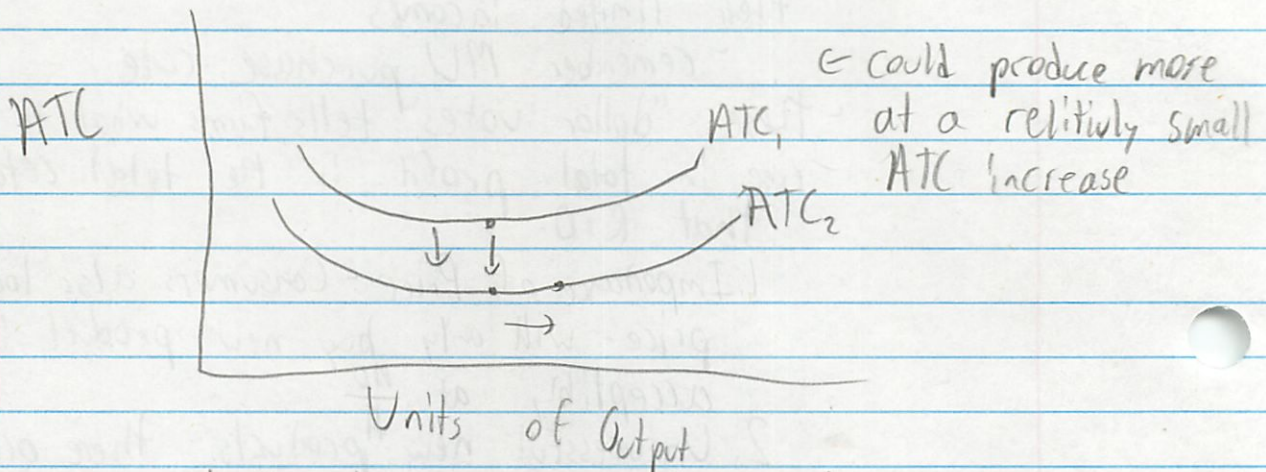 ATC
ATC₁
ATC₂
← could produce more
at a relitivly small
ATC increase
Units of Output